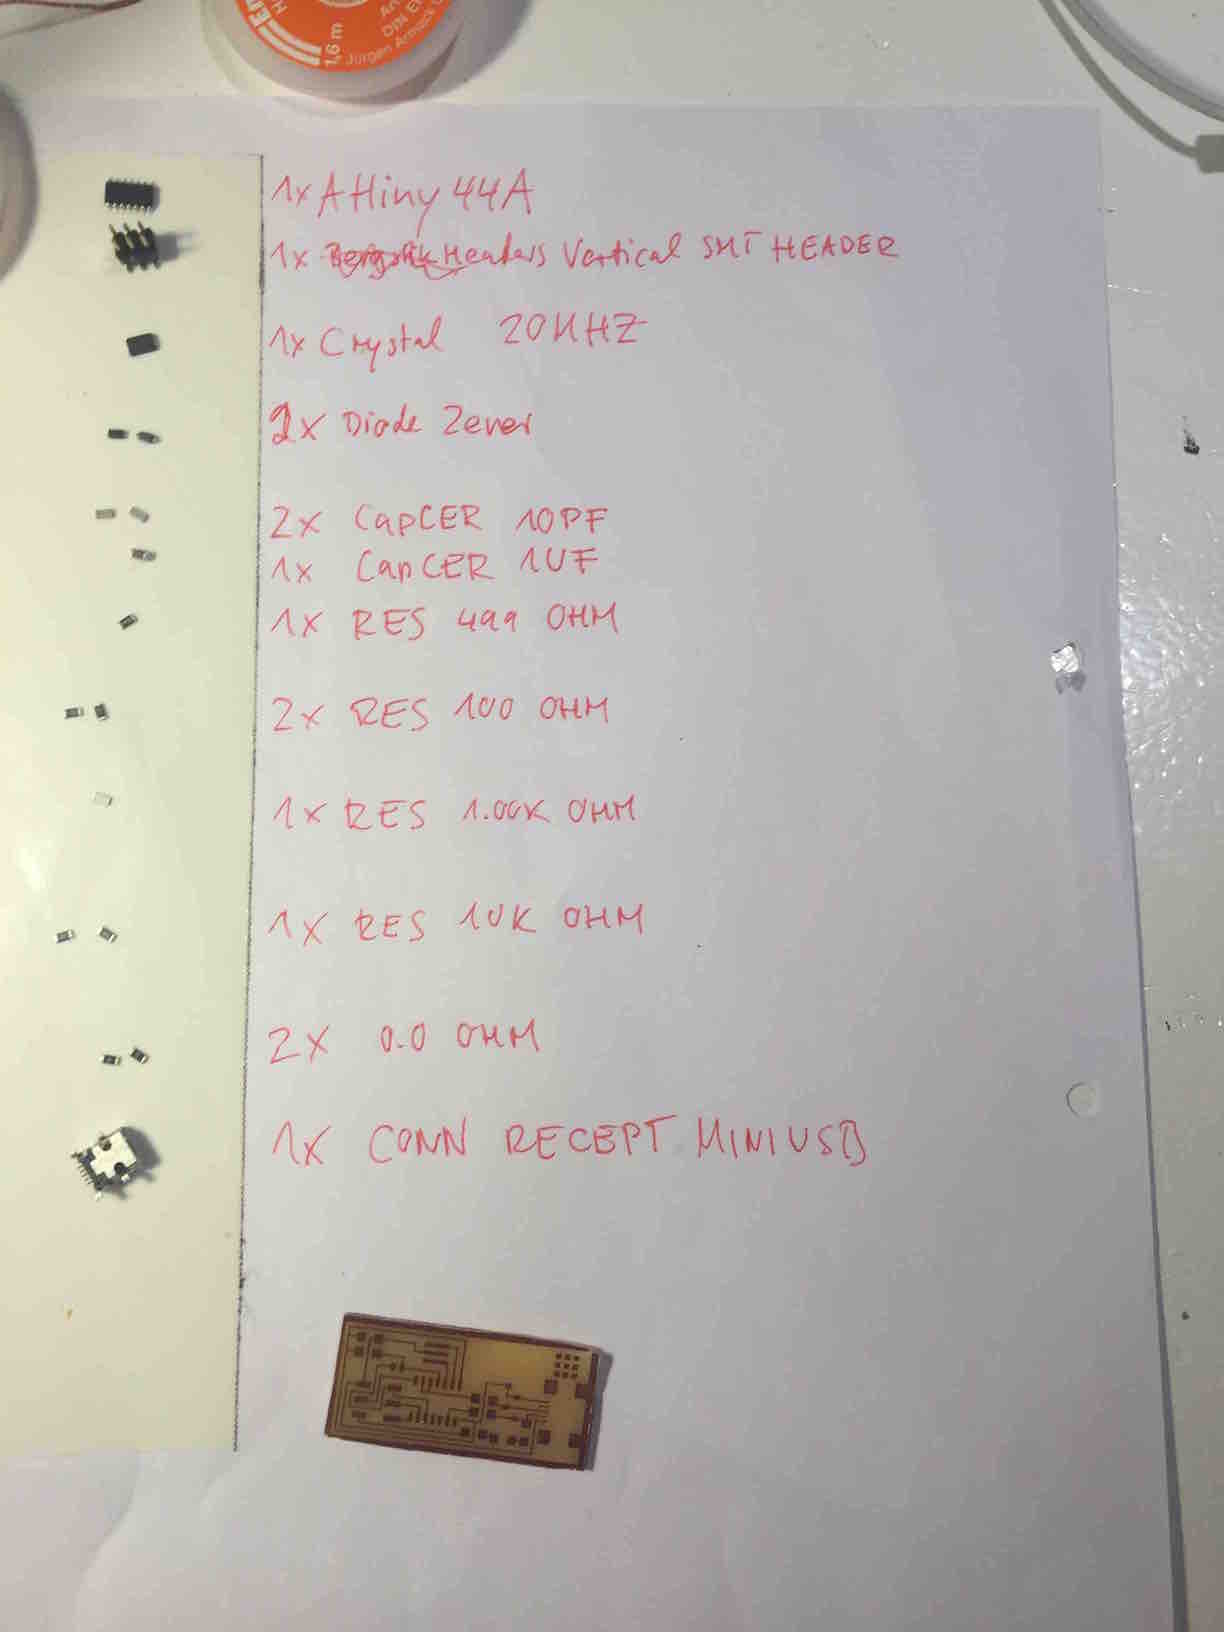 1,6 m
Jürgen Armack
DIN E
1x ATtiny 44A
1x Headers Vertical SMT HEADER
1x Crystal 20MHZ
2x Diode Zener
2x CapCER 10PF
1x CapCER 1UF
1x RES 499 OHM
2x RES 100 OHM
1x RES 1.00K OHM
1x RES 10K OHM
2x 0.0 OHM
1x CONN RECEPT MINIUSB